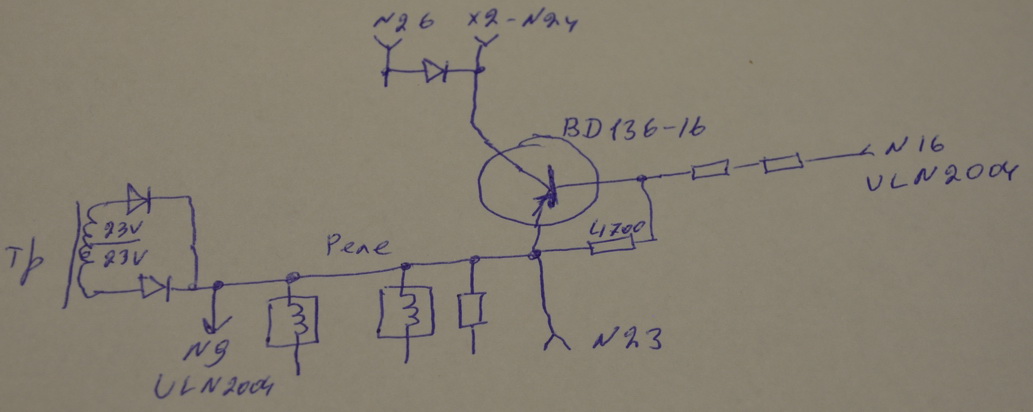 N26 X2-N24
BD136-16
N16
ULN2004
4700
Тр
23V
23V
Реле
N23
N9
ULN2004